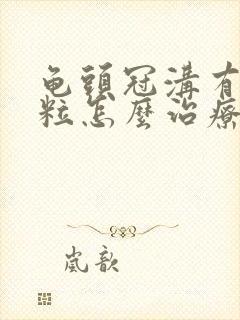 龟頭冠溝有
粒怎麽治療
嵐歆